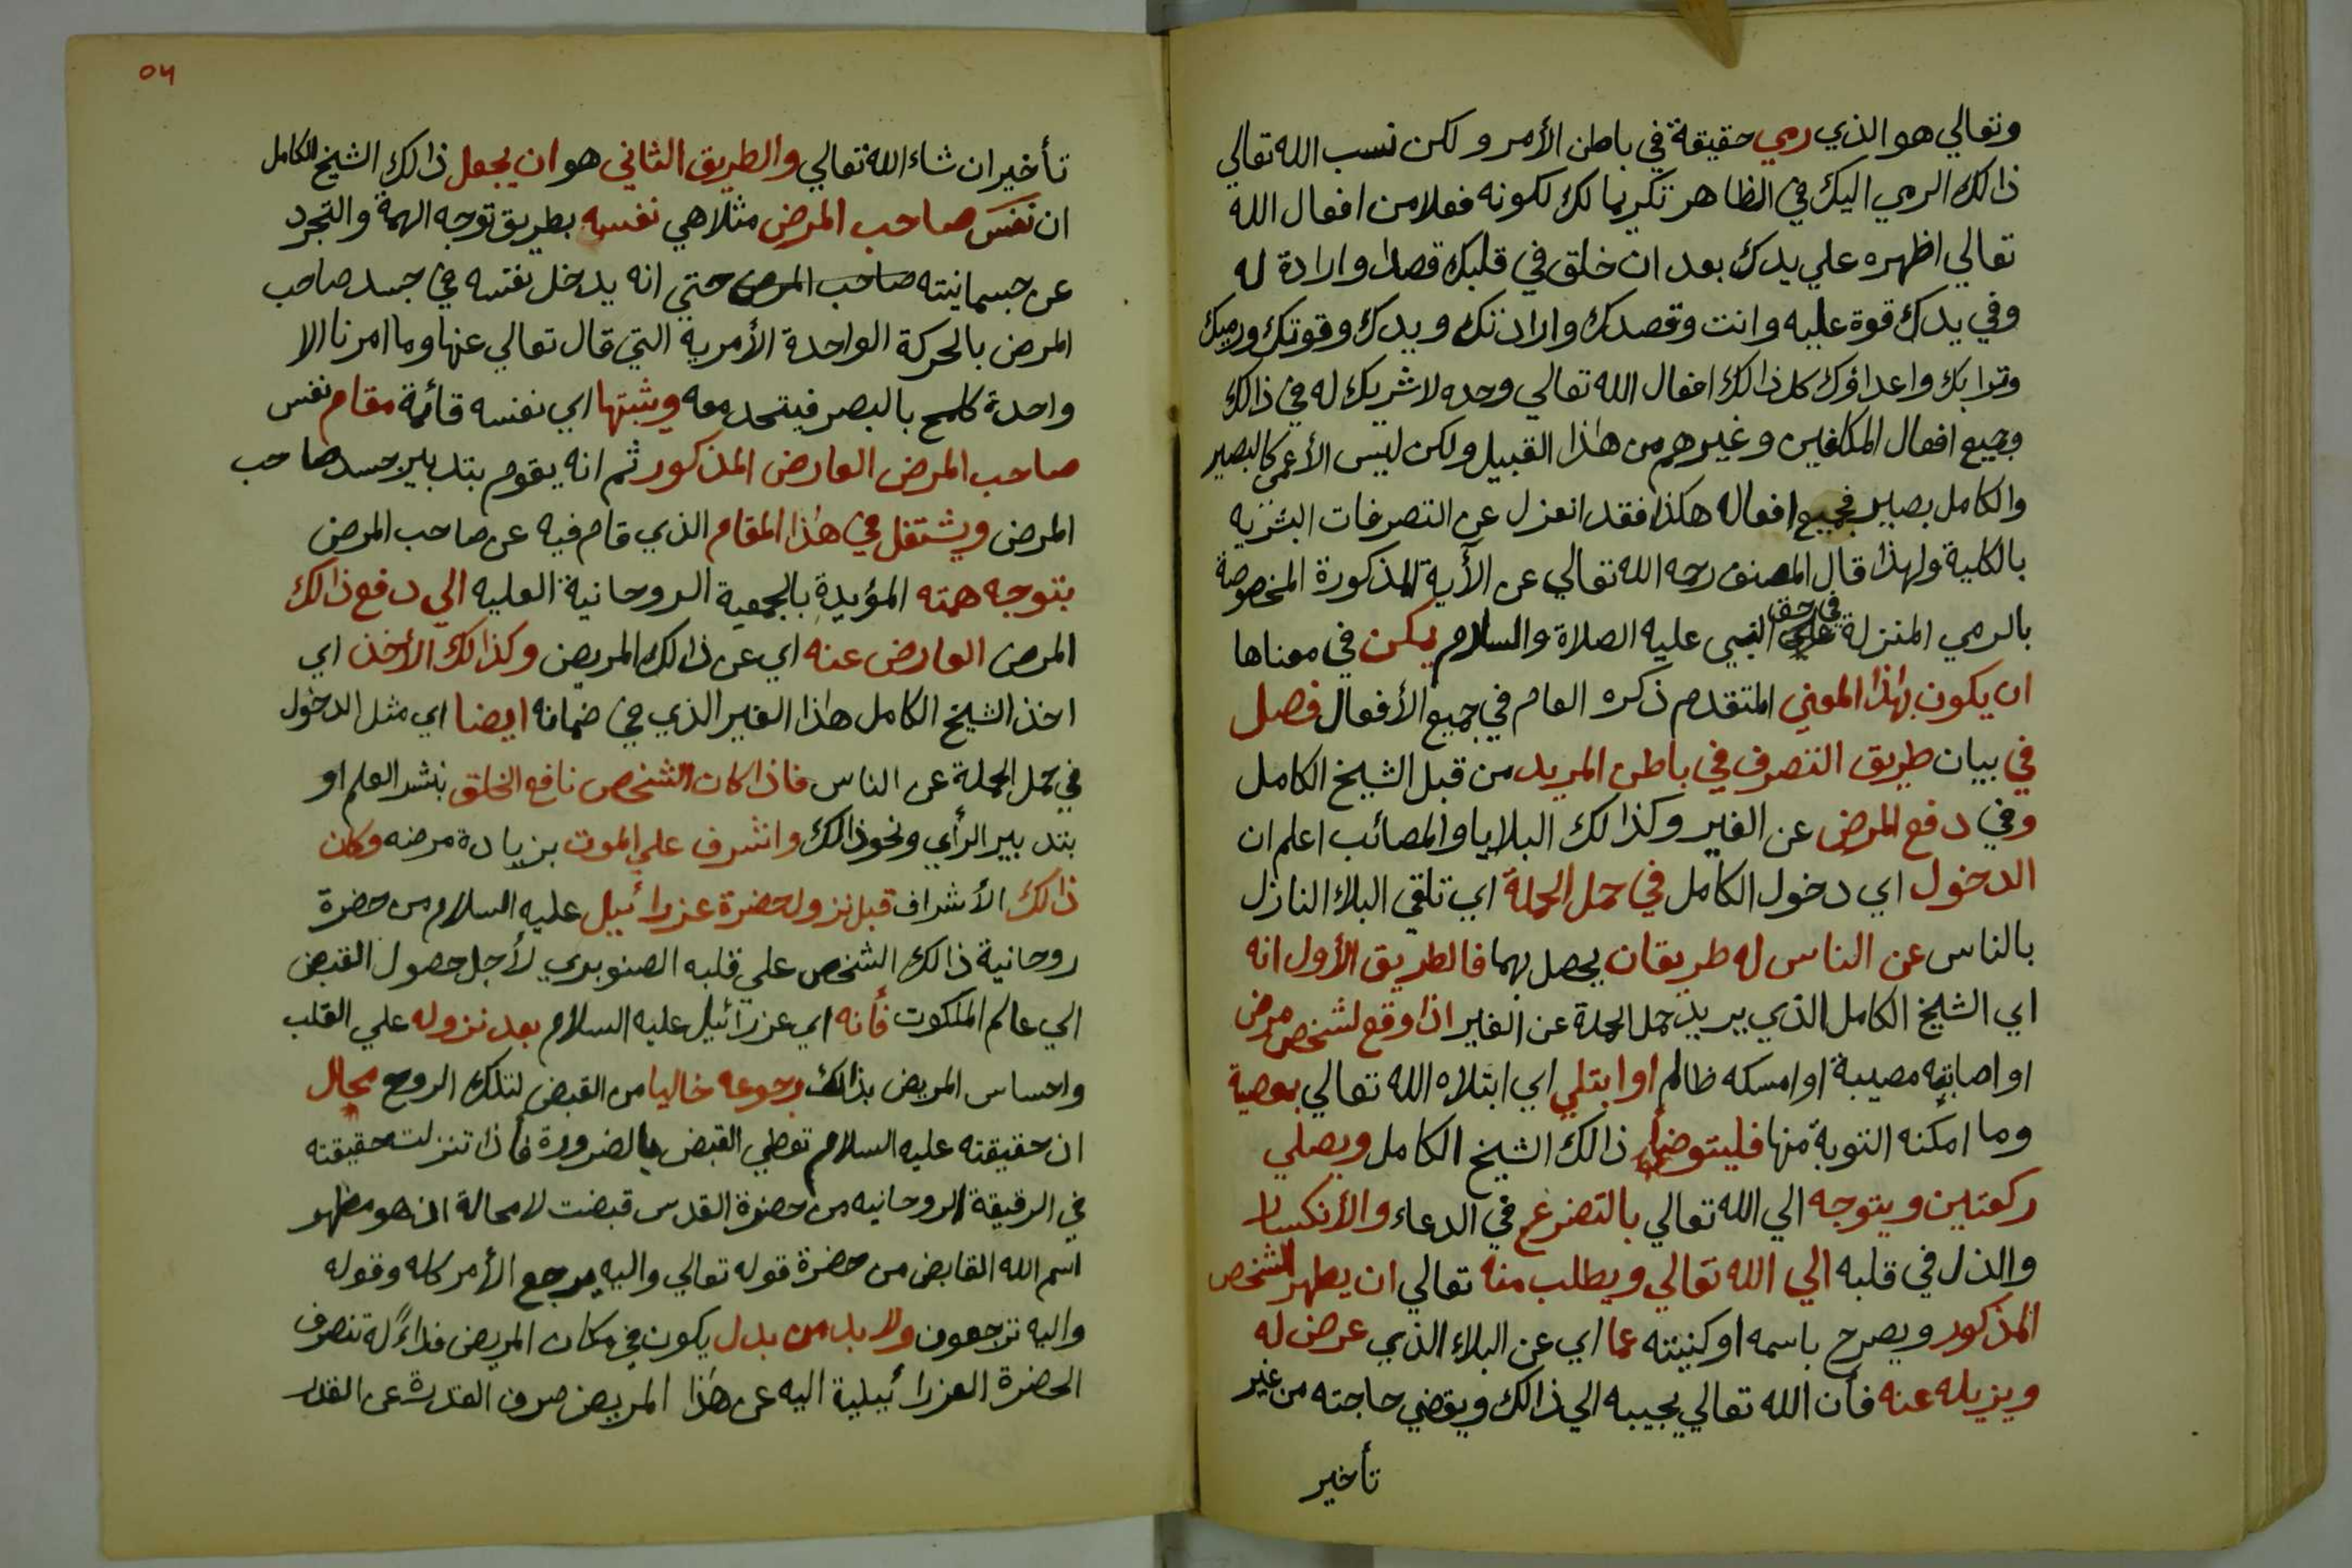 وتعالي هو الذي رمي حقيقة في باطن الأمر و لكن نسب الله تعالي
ذالك الرمي اليك في الظاهر تكريما لك لكونه فعلا من افعال الله
تعالي اظهره علي يدك بعد ان خلق في قلبك قصدا وارادة له
وفي يدك قوة عليه وانت وقصدك وارادتك ويدك وقوتك ورميك
وترابك واعداؤك كل ذالك افعال الله تعالي وحده لا شريك له في ذالك
وجميع افعال المكلفين وغيرهم من هذا القبيل ولكن ليس الأعمى كالبصير
والكامل بصير فجميع افعاله هكذا فقد انعزل عن التصرفات البشريه
بالكلية ولهذا قال المصنف رحمه الله تعالي عن الآية المذكورة المخصوصة
بالرمي المنزلة في حق النبي عليه الصلاة والسلام يمكن في معناها
ان يكون بهذا المعني المتقدم ذكره العام في جميع الأفعال فصل
في بيان طريق التصرف في باطن المريد من قبل الشيخ الكامل
وفي دفع المرض عن الغير وكذالك البلايا والمصائب اعلم ان
الدخول اي دخول الكامل في حمل الحملة اي تلقي البلاء النازل
بالناس عن الناس له طريقان يحصل بهما فالطريق الأول انه
اي الشيخ الكامل الذي يريد حمل الحملة عن الغير اذا وقع لشخص مرض
او اصابته مصيبة او امسكه ظالم او ابتلي اي ابتلاه الله تعالي بمعصية
وما امكنه التوبة منها فليتوضأ ذالك الشيخ الكامل ويصلي
ركعتين ويتوجه الي الله تعالي بالتضرع في الدعاء والأنكسار
والذل في قلبه الي الله تعالي ويطلب منه تعالي ان يطهر الشخص
المذكور ويصرح باسمه او كنيته عما اي عن البلاء الذي عرض له
ويزيله عنه فأن الله تعالي يجيبه الي ذالك ويقضي حاجته من غير
تأخير
٥٤
تأخير ان شاء الله تعالي والطريق الثاني هو ان يجعل ذالك الشيخ الكامل
ان نفس صاحب المرض مثلا هي نفسه بطريق توجه الهمة والتجرد
عن جسمانيته صاحب المرض حتي انه يدخل نفسه في جسد صاحب
المرض بالحركة الواحدة الأمرية التي قال تعالي عنها وما امرنا الا
واحدة كلمح بالبصر فيتحد معه ويثبتها اي نفسه قائمة مقام نفس
صاحب المرض العارض المذكور ثم انه يقوم بتدبير جسد صاحب
المرض ويشتغل في هذا المقام الذي قام فيه عن صاحب المرض
بتوجه همته المؤيدة بالجمعية الروحانية العليه الي دفع ذالك
المرض العارض عنه اي عن ذالك المريض وكذالك الأخذ اي
اخذ الشيخ الكامل هذا الغير الذي في ضمانه ايضا اي مثل الدخول
في حمل الحملة عن الناس فاذا كان الشخص نافع الخلق بنشر العلم او
بتدبير الرأي ونحو ذالك واشرف علي الموت بزيادة مرضه وكان
ذالك الأشراف قبل نزول حضرة عزرائيل عليه السلام من حضرة
روحانية ذالك الشخص علي قلبه الصنوبري لأجل حصول القبض
الي عالم الملكوت فأنه اي عزرائيل عليه السلام بعد نزوله علي القلب
واحساس المريض بذالك رجوعه خاليا من القبض لتلك الروح محال
ان حقيقته عليه السلام تعطي القبض بالضرورة فأذا تنزلت حقيقته
في الرقيقة الروحانيه من حضرة القدس قبضت لا محالة اذ هو مظهر
اسم الله القابض من حضرة قوله تعالي واليه يرجع الأمر كله وقوله
واليه ترجعون ولا بد من بدل يكون في مكان المريض فداءً له تنصرف
الحضرة العزرائيلية اليه عن هذا المريض صرف القدرة عن القدر